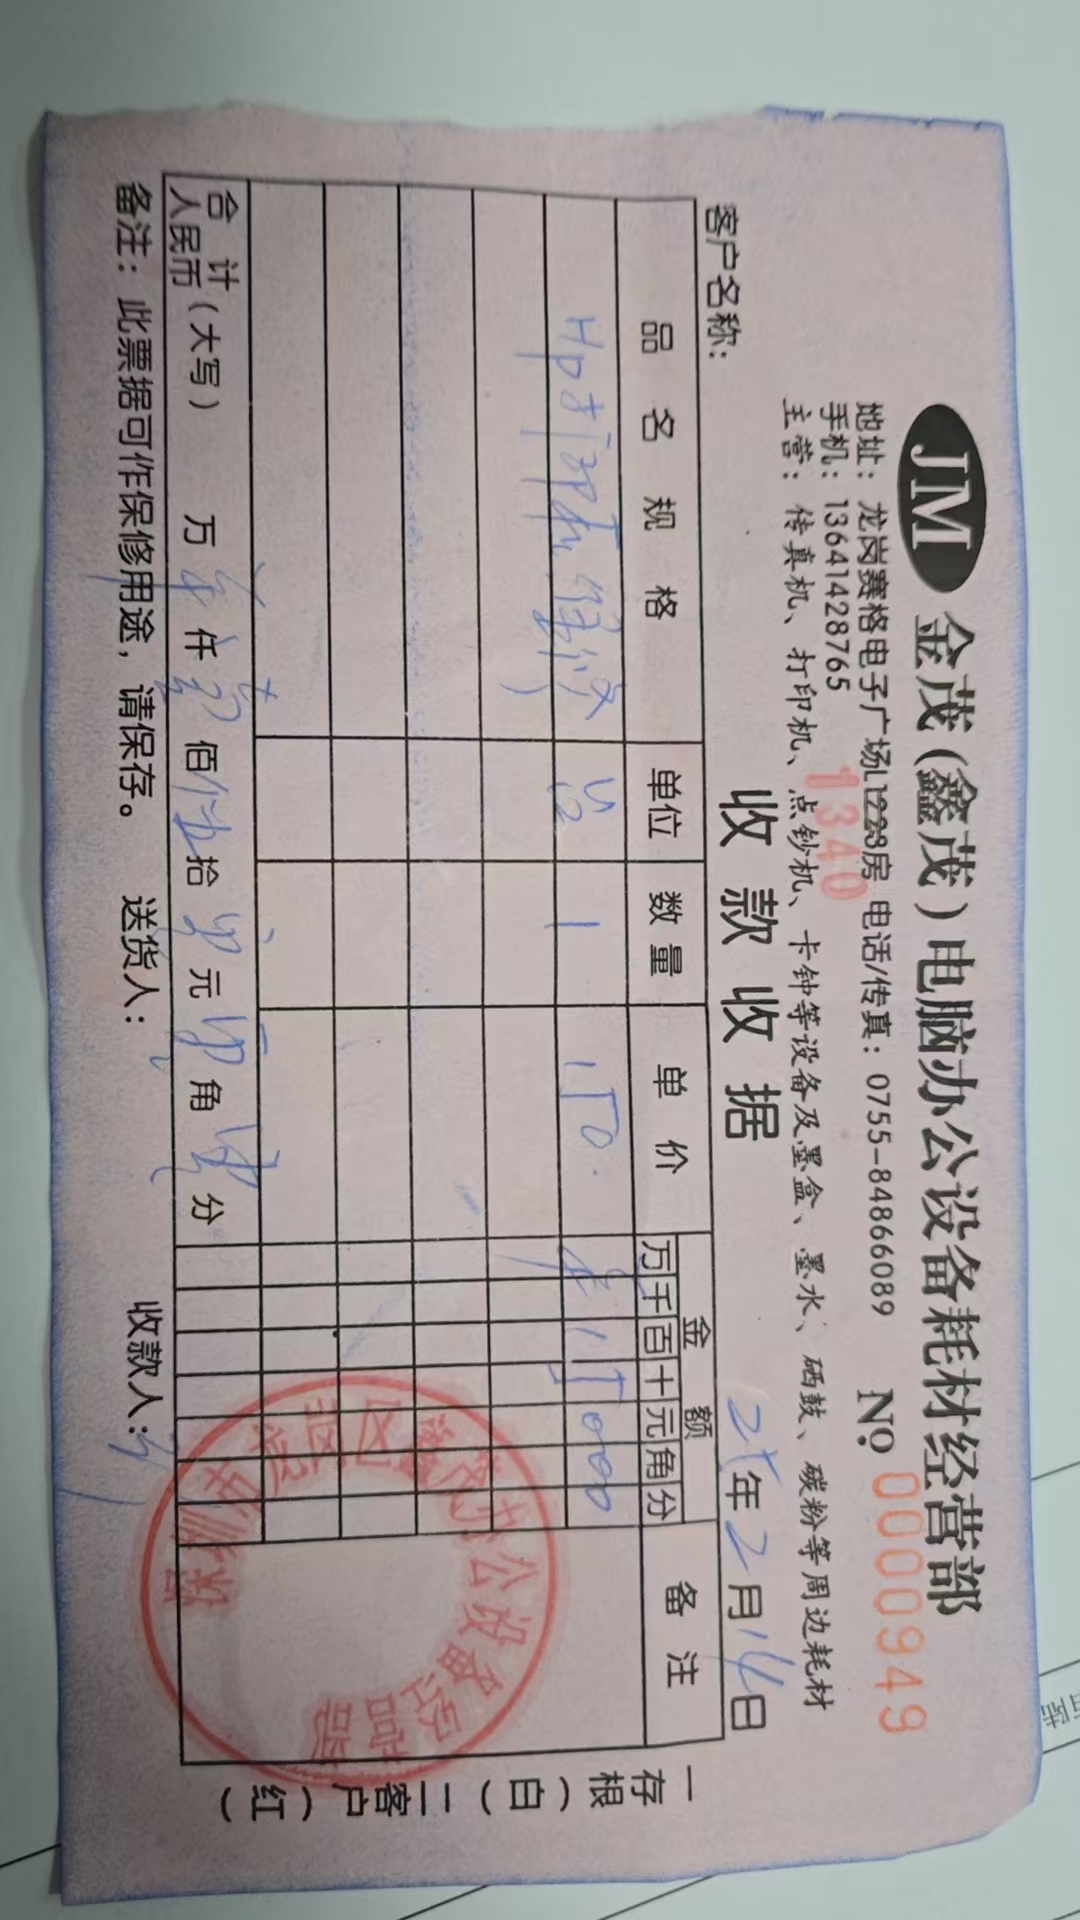 JM 金茂(鑫茂)电脑办公设备耗材经营部
地址：龙岗赛格电子广场L1223房 电话/传真：0755-84866089
1340
手机：13641428765
No 0000949
主营：传真机、打印机、点钞机、卡钟等设备及墨盒、墨水、硒鼓、碳粉等周边耗材
收款收据
客户名称：
25年2月14日
品名规格 单位 数量 单价 金额 备注
万千百十元角分
HP打印机维修 台 1 150. ¥15000
合计人民币(大写) 万 仟 壹佰伍拾零元零角零分
备注：此票据可作保修用途，请保存。 送货人： 收款人：
一存根(白)二客户(红)